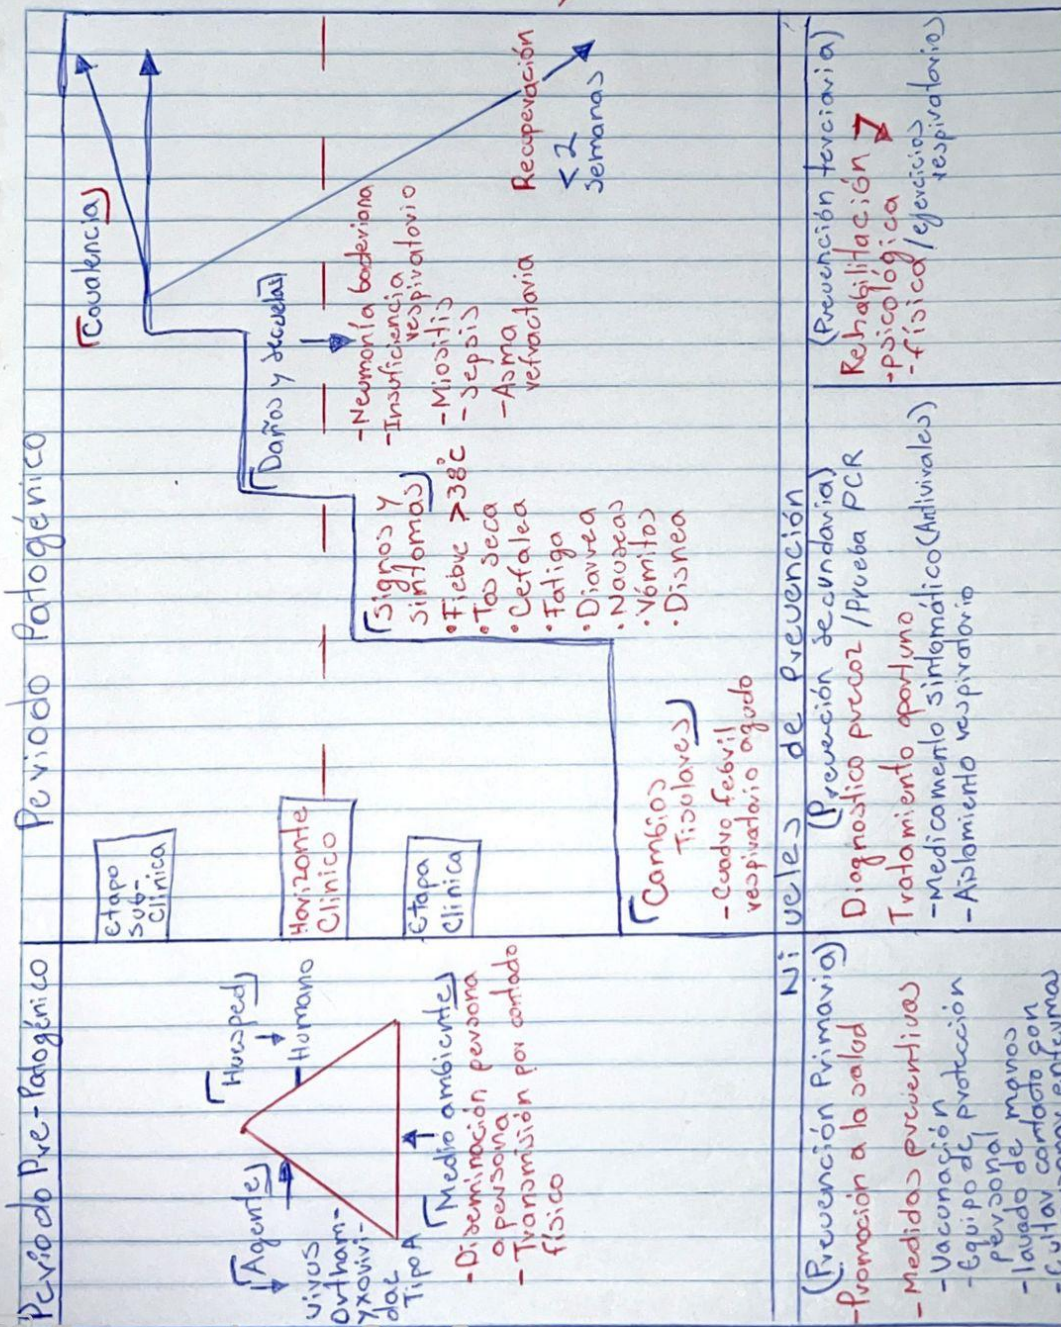 Periodo Pre-Patogénico
Periodo Patogénico
⌈Agente⌋
Virus
Ortham-
yxoviri-
dae
Tipo A
⌈Huesped⌋
-Humano
⌈Medio ambiente⌋
-Diseminación persona
a persona
-Transmisión por contacto
físico
etapa
sub-
clinica
Horizonte
Clinico
Etapa
Clinica
⌈Cambios
Tisulares⌋
-Cuadro febril
respiratorio agudo
⌈Signos y
sintomas⌋
•Fiebre >38°C
•Tos seca
•Cefalea
•Fatiga
•Diarrea
•Nauseas
•Vómitos
•Disnea
⌈Daños y secuelas⌋
-Neumonía bacteriana
-Insuficiencia
respiratorio
-Miositis
-sepsis
-Asma
refractaria
⌈Covalencia⌋
Recuperación
<2
semanas
Niveles de prevención
(Prevención Primaria)
-Promoción a la salud
-Medidas preventivas
-Vacunación
-Equipo de protección
personal
-lavado de manos
(Prevención secundaria)
Diagnostico precoz /Prueba PCR
Tratamiento oportuno
-Medicamento sintomático(Antivirales)
-Aislamiento respiratorio
(Prevención terciaria)
Rehabilitación
-psicológica
-física/ejercicios
respiratorios